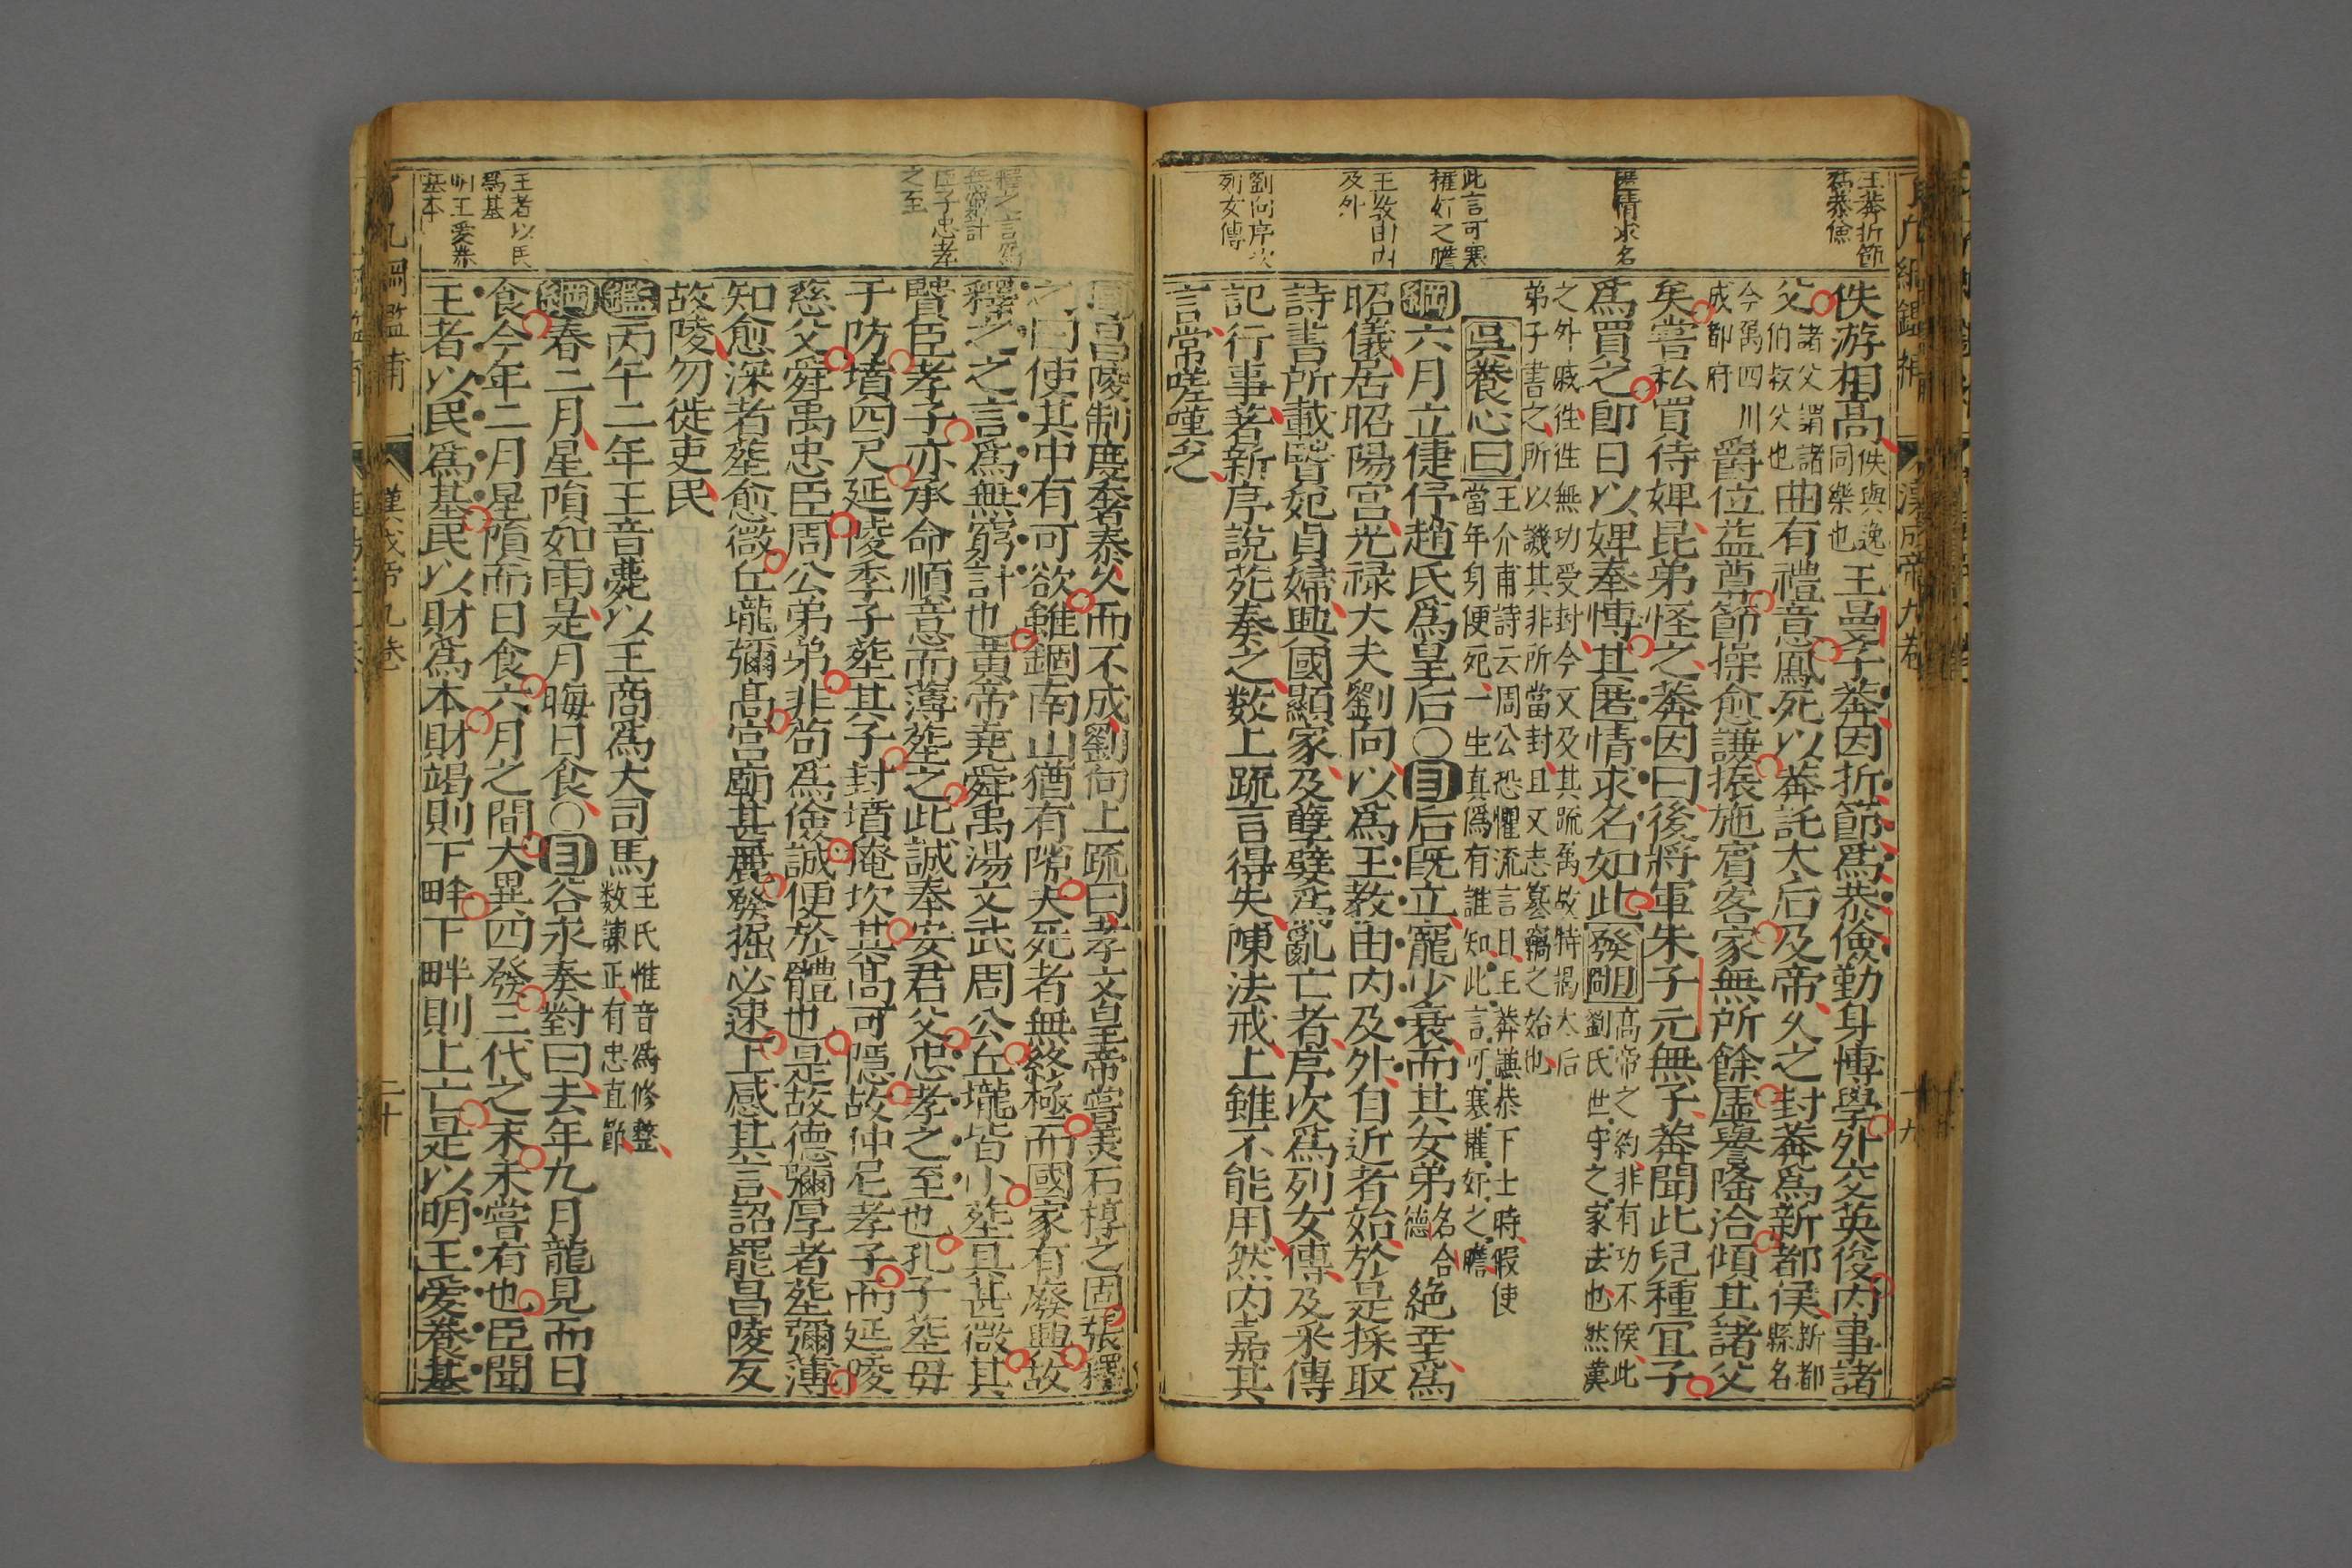 王莽折節
爲恭儉
匿情求名
此言可寒
權奸之膽
王敎由内
及外
劉向序次
列女傳
佚游相高佚與逸同樂也王曼子莽因折節爲恭儉勤身博學外交英俊内事諸
父諸父謂諸伯叔父也曲有禮意鳳死以莽託太后及帝久之封莽爲新都侯新都縣名
今蜀四川成都府爵位益尊節操愈謙振施賓客家無所餘虛譽隆洽傾其諸父
矣嘗私買侍婢昆弟怪之莽因曰後將軍朱子元無子莽聞此兒種宜子
爲買之卽日以婢奉博其匿情求名如此發明高帝之約非有功不候此劉氏世守之家法也然漢
之外戚徃徃無功受封今又及其䟽蜀故特揭太后
弟子書之所以譏其非所當封且又志簒竊之始也
吳養心曰王介甫詩云周公恐懼流言日王莽謙恭下士時假使當年身便死一生真僞有誰知此言可寒權奸之膽
綱六月立倢伃趙氏爲皇后〇目后旣立寵少衰而其女弟名合德絶幸爲
昭儀居昭陽宮光禄大夫劉向以爲王敎由内及外自近者始於是採取
詩書所載賢妃貞婦興國顯家及孽嬖爲亂亡者序次爲列女傳及采傳
記行事著新序說苑奏之数上䟽言得失陳法戒上雖不能用然内嘉其
言常嗟嘆之
漢成帝九卷
十九
釋之言爲
無窮計
臣子忠孝
之至
王者以民
爲基
明王愛養
基本
昌陵制度奢泰久而不成劉向上疏曰孝文皇帝嘗美石椁之固張釋
之曰使其中有可欲雖錮南山猶有隙夫死者無終極而國家有廢興故
釋之之言爲無窮計也黃帝堯舜禹湯文武周公丘壠皆小塟具甚微其
賢臣孝子亦承命順意而薄塟之此誠奉安君父忠孝之至也孔子塟母
于防墳四尺延陵季子塟其子封墳掩坎其高可隱故仲尼孝子而延陵
慈父舜禹忠臣周公弟弟非苟爲儉誠便於體也是故德彌厚者塟彌薄
知愈深者塟愈微丘壠彌高宮廟甚麗發掘必速上感其言詔罷昌陵反
故陵勿徙吏民
鑑丙午二年王音薨以王商爲大司馬王氏惟音爲修整数諫正有忠直節
綱春二月星隕如雨是月晦日食〇目谷永奏對曰去年九月龍見而日
食今年二月星隕而日食六月之間大異四發三代之末未嘗有也臣聞
王者以民爲基民以財爲本財竭則下畔下畔則上亡是以明王愛養基
漢成帝九卷
二十